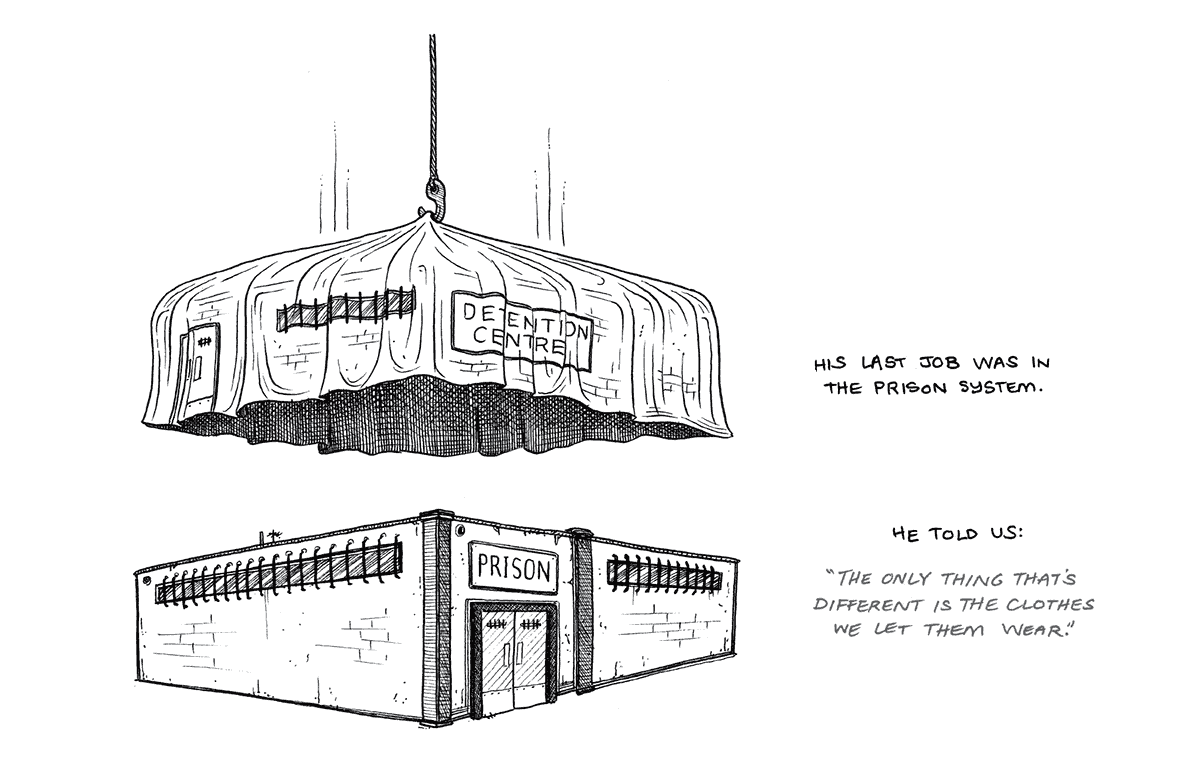 DETENTION
CENTRE
HIS LAST JOB WAS IN
THE PRISON SYSTEM.
PRISON
HE TOLD US:
"THE ONLY THING THAT'S
DIFFERENT IS THE CLOTHES
WE LET THEM WEAR."